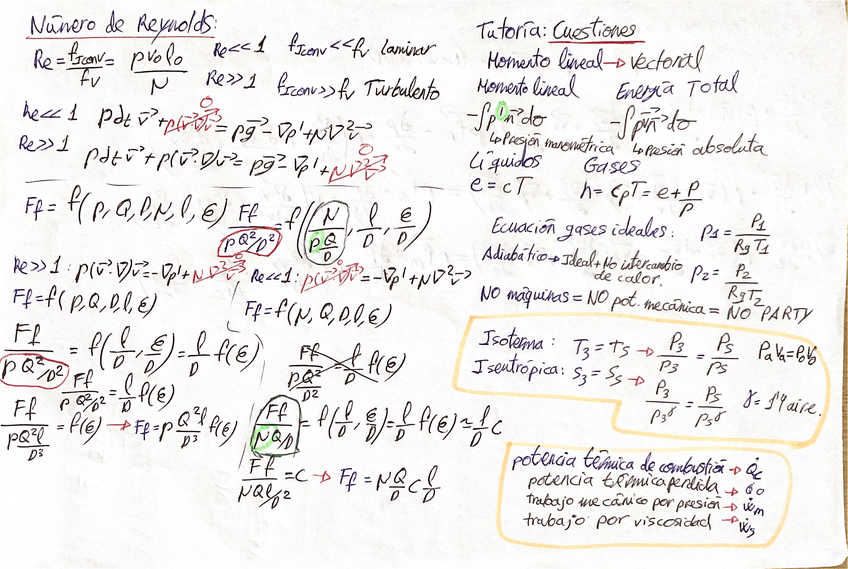 Número de Reynolds:
Re = fIconv/fv = ρ v0 l0/N
Re<<1 fIconv<<fv laminar
Re>>1 fIconv>>fv Turbulento
Re<<1 ρ dt v⃗ + ρ(v⃗·∇)v⃗ 0 = ρg⃗ - ∇p' + N∇²v⃗
Re>>1 ρ dt v⃗ + ρ(v⃗·∇)v⃗ = ρg⃗ - ∇p' + N∇²v⃗ 0
Ff = f(ρ, Q, D, N, l, ε) Ff/(ρQ²/D²) = f(N/(ρQ/D), l/D, ε/D)
Re>>1: ρ(v⃗·∇)v⃗ = -∇p' + N∇²v⃗ 0
Ff = f(ρ, Q, D, l, ε)
Ff/(ρQ²/D²) = f(l/D, ε/D) = l/D f(ε)
Ff/(ρQ²/D²) = l/D f(ε)
Ff/(ρQ²l/D³) = f(ε) → Ff = ρ Q²l/D³ f(ε)
Re<<1: ρ(v⃗·∇)v⃗ 0 = -∇p' + N∇²v⃗
Ff = f(N, Q, D, l, ε)
Ff/(ρQ²/D²) = l/D f(ε)
Ff/(NQ/D) = f(l/D, ε/D) = l/D f(ε) ≈ l/D C
Ff/(NQl/D²) = C → Ff = N Q/D C l/D
Tutoría: Cuestiones
Momento lineal → vectorial
Momento lineal Energía Total
-∫p'n⃗dσ -∫pv⃗n⃗dσ
↳ Presión manométrica ↳ Presión absoluta
Líquidos Gases
e = cT h = CpT = e + P/ρ
Ecuación gases ideales: ρ1 = P1/(Rg T1)
Adiabático → Ideal + No intercambio
de calor. ρ2 = P2/(Rg T2)
NO máquinas = NO pot. mecánica = NO PARTY
Isoterma: T3 = T5 → P3/ρ3 = P5/ρ5
Isentrópica: S3 = S5 → P3/ρ3^γ = P5/ρ5^γ γ = 1'4 aire.
potencia térmica de combustión → Q̇c
potencia térmica perdida → Q̇0
trabajo mecánico por presión → Ẇm
trabajo por viscosidad → Ẇs